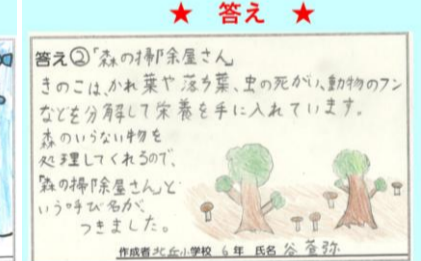 ★ 答え ★
答え②「森の掃除屋さん」
きのこは、かれ葉や落ち葉、虫の死がい、動物のフン
などを分解して栄養を手に入れています。
森のいらない物を
処理してくれるので、
「森の掃除屋さん」と
いう呼び名が、
つきました。
作成者 北丘小学校 6年 氏名 谷 蒼弥